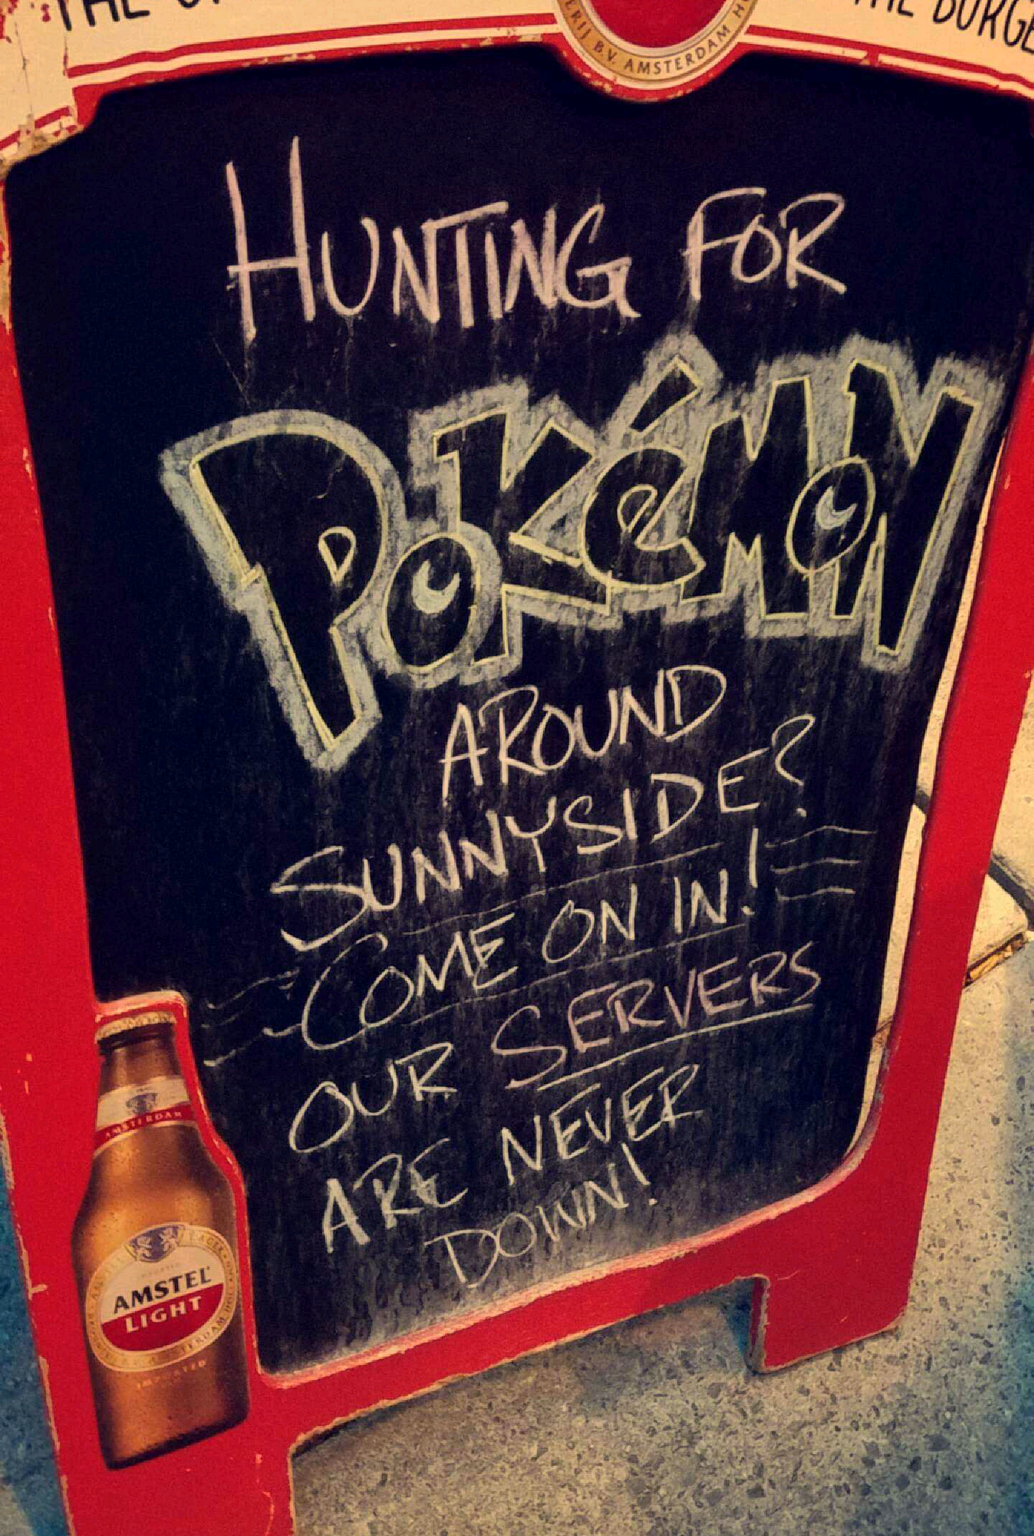 THE BURGE
BV. AMSTERDAM
HUNTING FOR
POKéMON
AROUND
SUNNYSIDE?
COME ON IN!
OUR SERVERS
ARE NEVER
DOWN!
AMSTERDAM
AMSTEL
LIGHT
IMPORTED